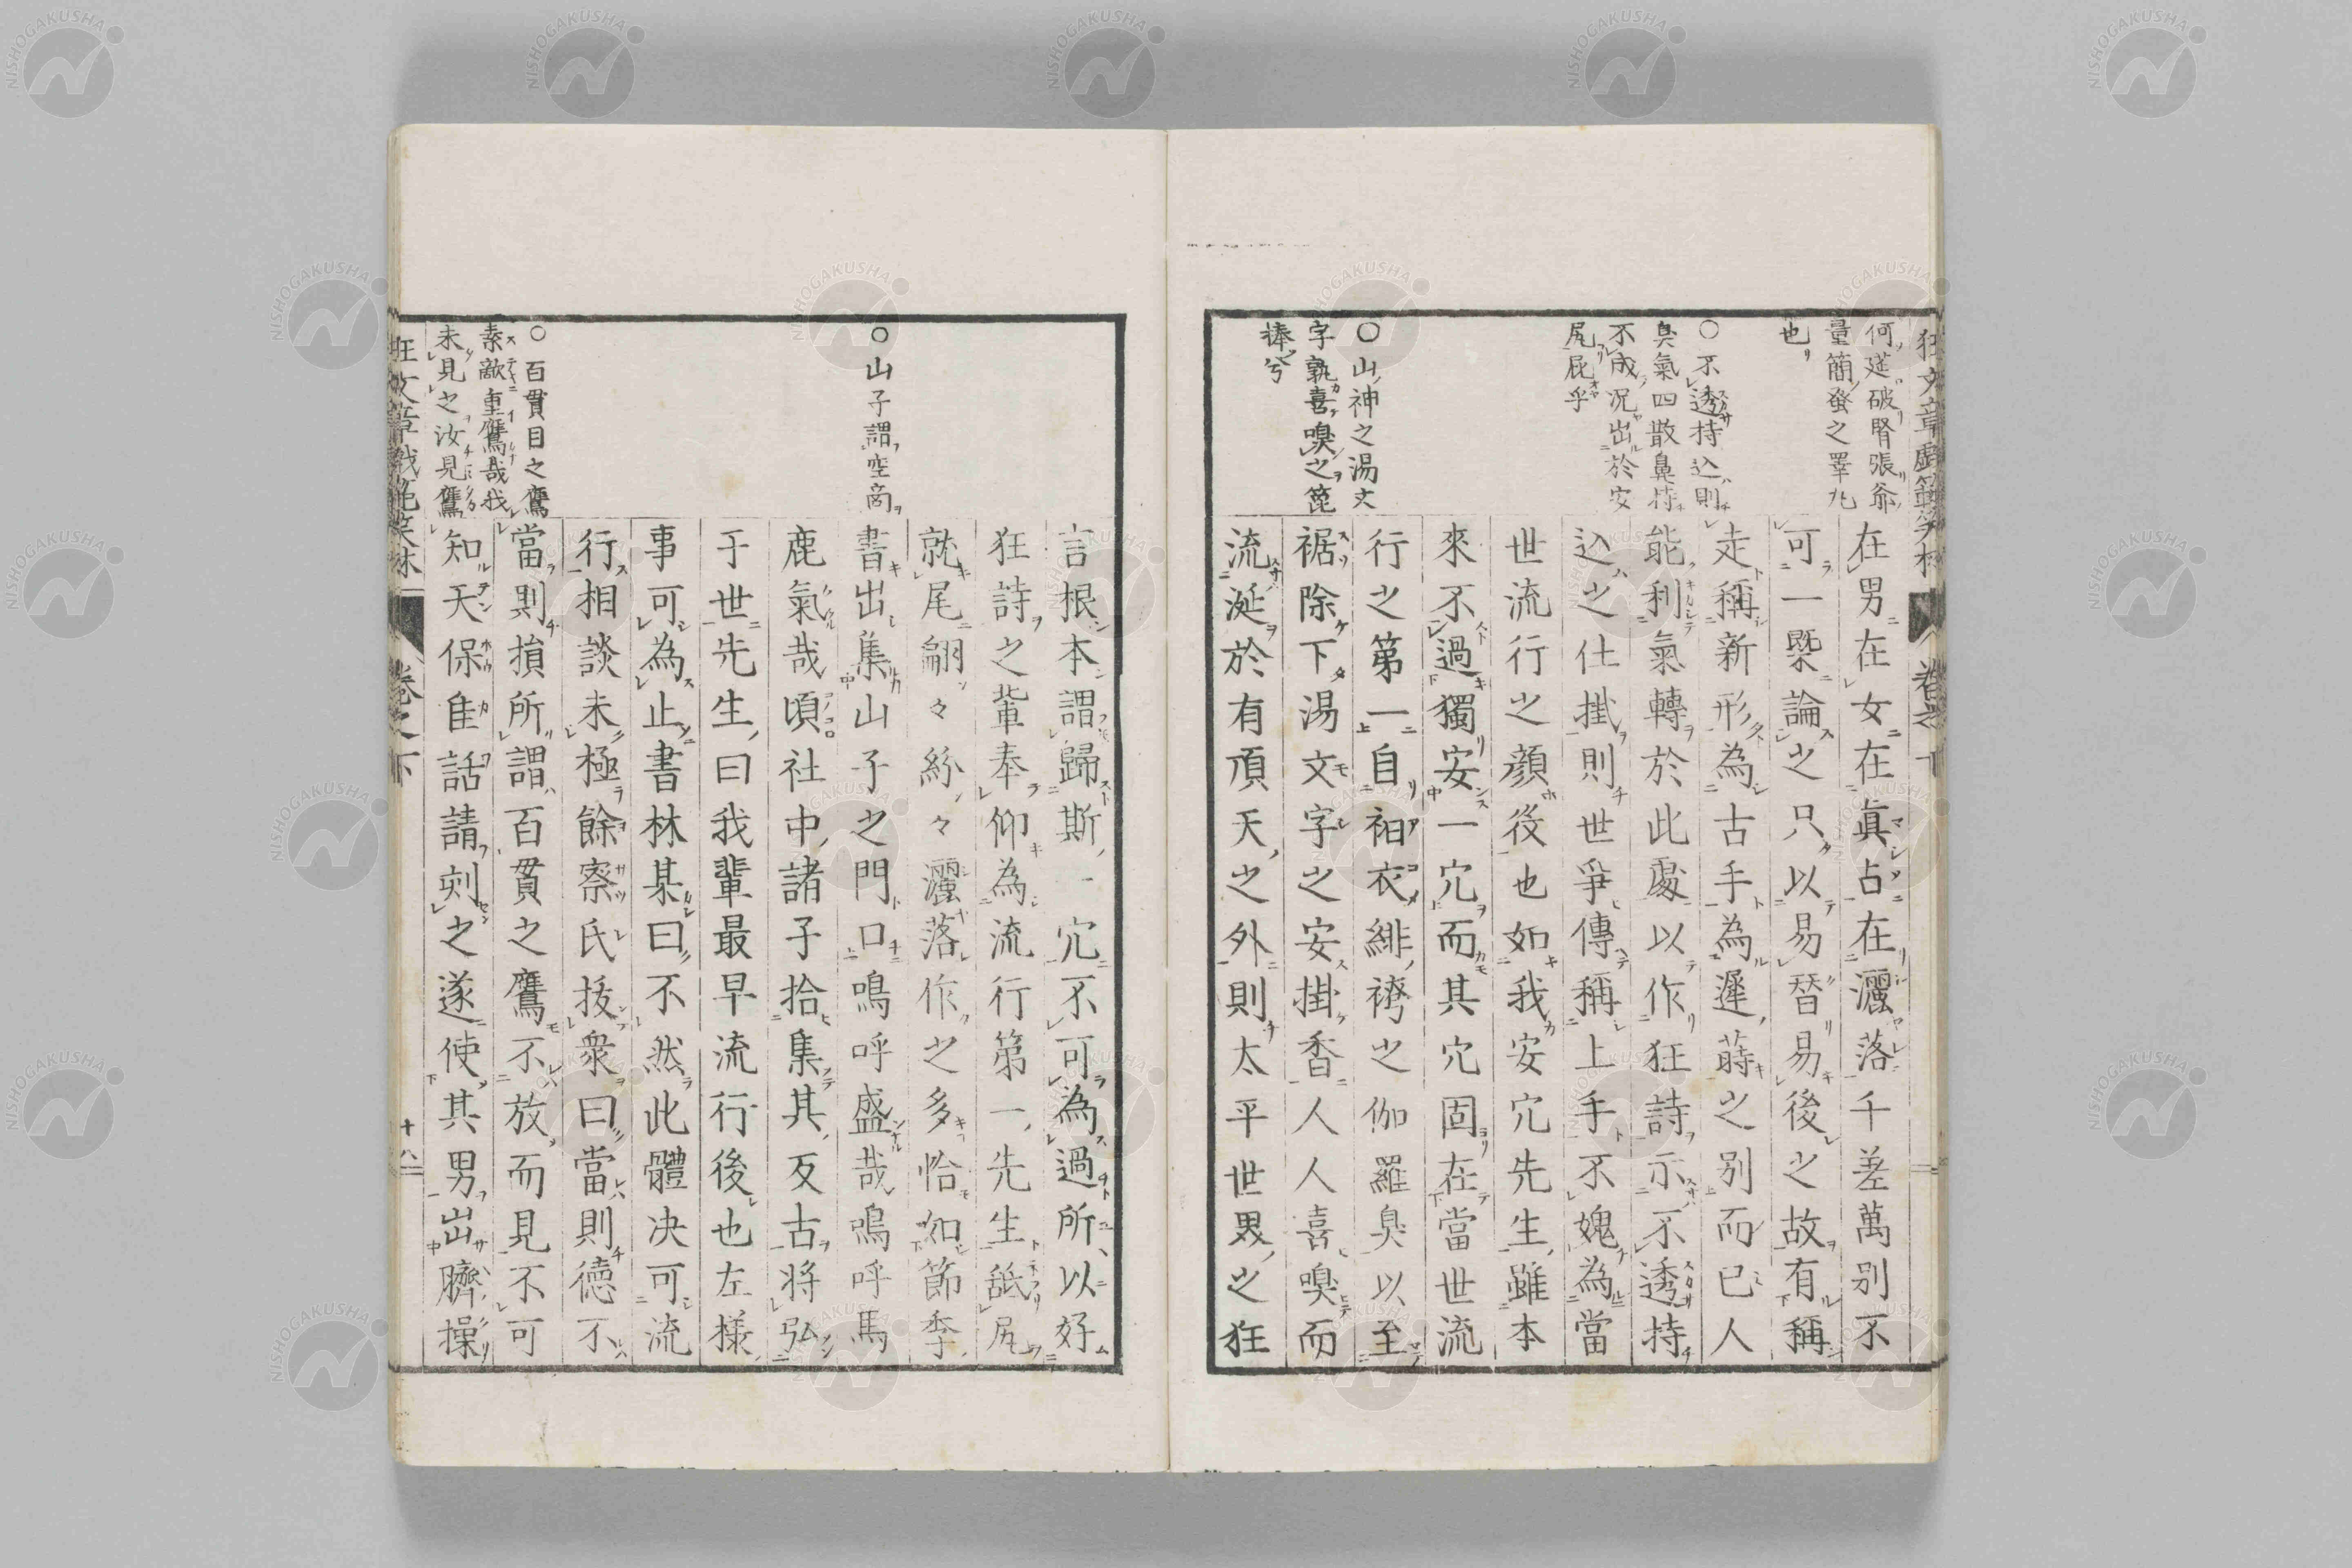 何莚破腎張爺
量簡發之睪丸
也
○不透持込則
臭氣四散鼻持
不成况出於安
尻屁乎
○山神之湯文
字孰喜嗅之篦
捧兮
在男在女在眞占在灑落千差萬别不
可一槩論之只以易替易後之故有稱
走稱新形為古手為遲蒔之别而已人
能利氣轉於此處以作狂詩示不透持
込之仕掛則世爭傳稱上手不媿為當
世流行之顔役也如我安穴先生雖本
來不過獨安一穴而其穴固在當世流
行之第一自袙衣緋袴之伽羅臭以至
裾除下湯文字之安掛香人人喜嗅而
流涎於有頂天之外則太平世界之狂
○山子謂空商
○百貫目之鷹
素敵重鷹哉我
未見之汝見鷹
言根本謂歸斯一穴不可為過所以好
狂詩之輩奉仰為流行第一先生舐尻
就尾翩々紛々灑落作之多恰如節季
書出集山子之門口鳴呼盛哉鳴呼馬
鹿氣哉頃社中諸子拾集其反古将弘
于世先生曰我輩最早流行後也左樣
事可為止書林某曰不然此體决可流
行相談未極餘察氏拔衆曰當則德不
當則損所謂百貫之鷹不放而見不可
知天保隹話請刻之遂使其男出臍操
卷之下
十八